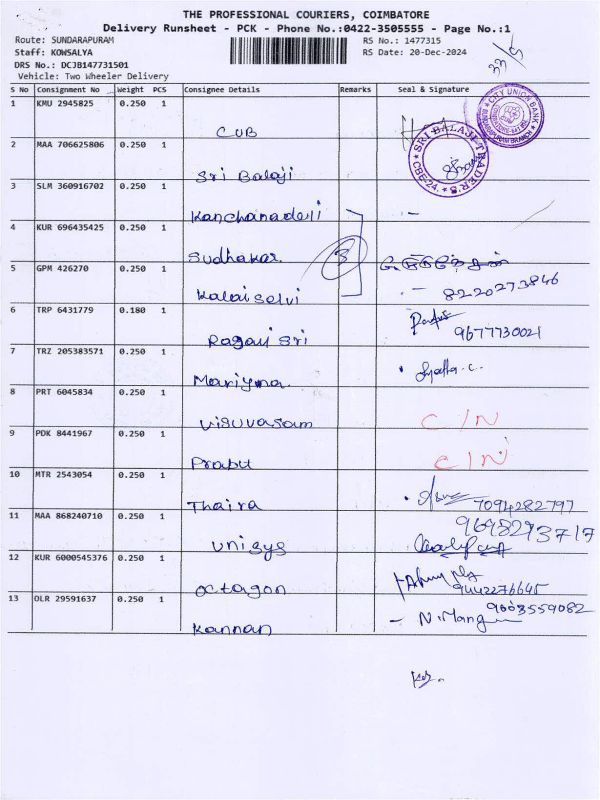 THE PROFESSIONAL COURIERS, COIMBATORE
Delivery Runsheet - PCK - Phone No.:0422-3505555 - Page No.:1
Route: SUNDARAPURAM
RS No.: 1477315
Staff: KOWSALYA
RS Date: 20-Dec-2024
DRS No.: DCJB147731501
Vehicle: Two Wheeler Delivery
S No Consignment No Weight PCS Consignee Details Remarks Seal & Signature
1 KMU 2945825 0.250 1
CUB
CITY UNION BANK
2 MAA 706625806 0.250 1
Sri Balaji
SRI BALAJI TRADERS
CBE-24.
3 SLM 360916702 0.250 1
Kanchanadevi
4 KUR 696435425 0.250 1
Sudhakar
3
5 GPM 426270 0.250 1
Kalaiselvi 8220273846
6 TRP 6431779 0.180 1
Ragavi Sri 9677730021
7 TRZ 205383571 0.250 1
Mariyma
8 PRT 6045834 0.250 1
Visuvasam C/N
9 PDK 8441967 0.250 1
Prabu C/N
10 MTR 2543054 0.250 1
Thaira 7094282797
11 MAA 868240710 0.250 1
Unisys 9698293717
12 KUR 6000545376 0.250 1
Octagon 9442276645
13 OLR 29591637 0.250 1
Kannan N.Mang 9003559082